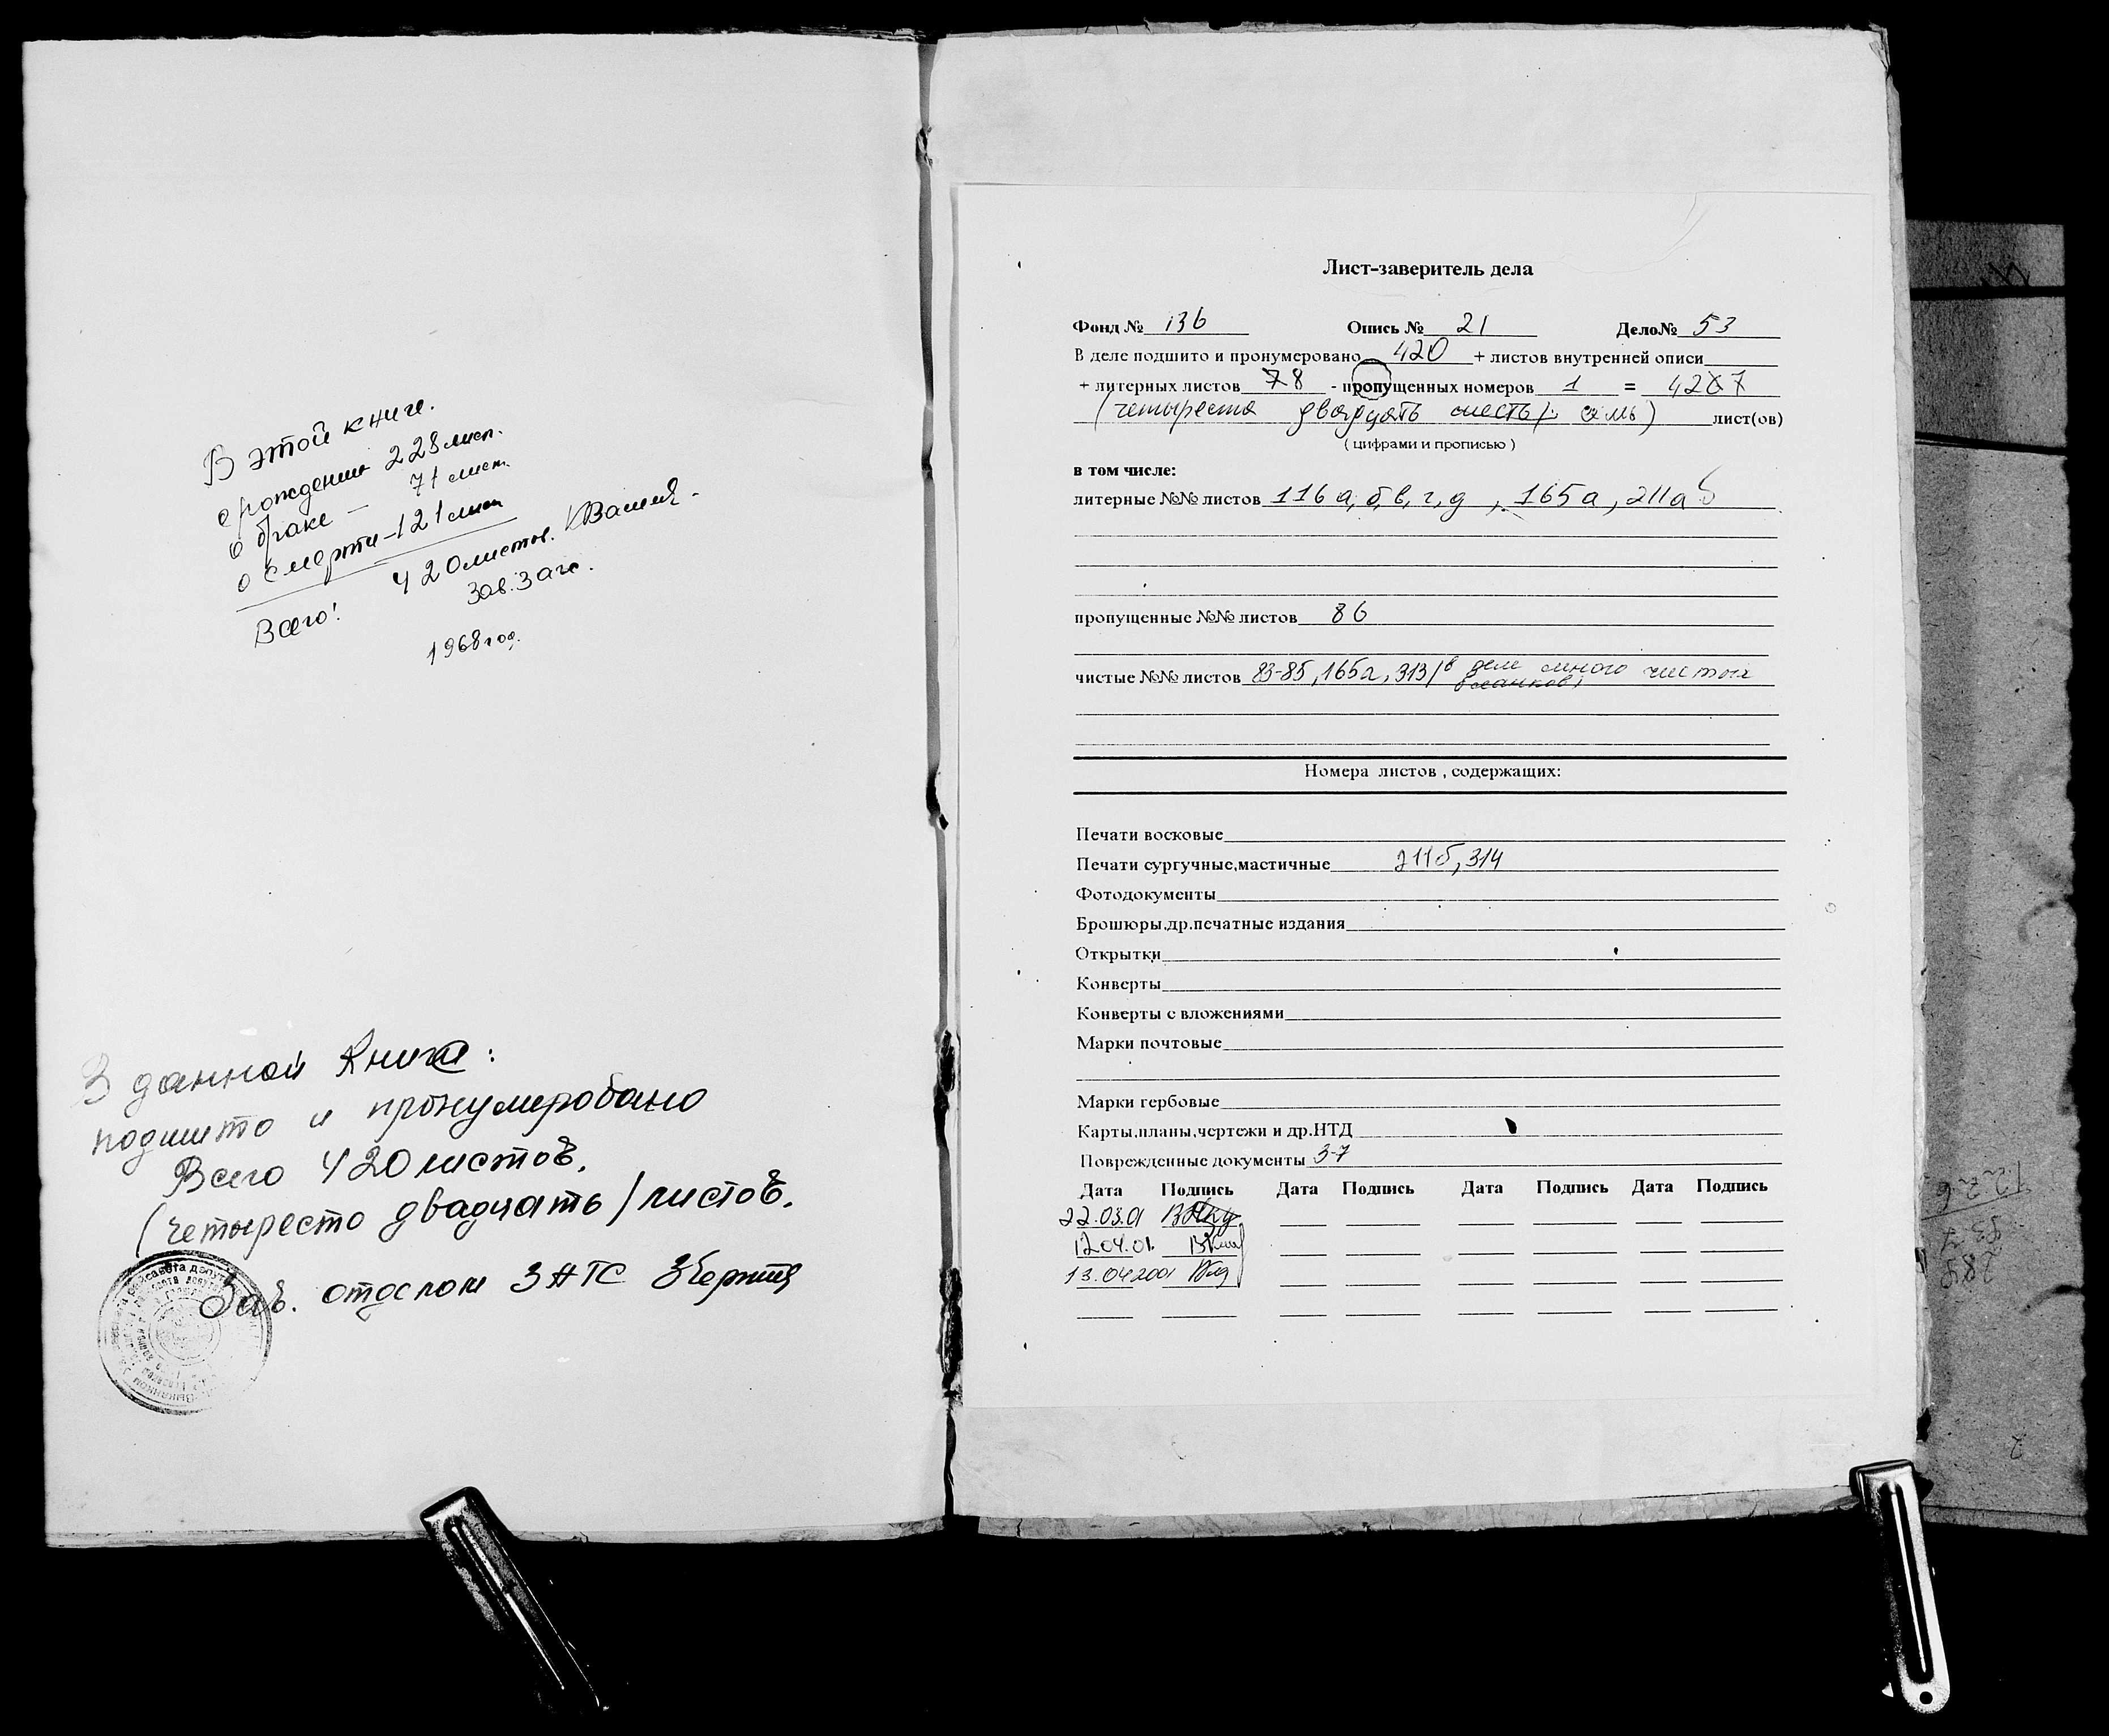 В этой книге.
о рождении 228 лист.
о браке — 71 лист.
о смерти – 121 лист
Всего! 420 листов.
Зав. Загс.
1968 год.
В данной книге:
подшито и пронумеровано
Всего 420 листов.
(четыресто двадцать) листов.
Зав. отделом ЗАГС
Лист-заверитель дела
Фонд № 136 Опись № 21 Дело№ 53
В деле подшито и пронумеровано 420 + листов внутренней описи
+ литерных листов 7 8 - пропущенных номеров 1 = 426 7
(четыреста двадцать шесть) семь) лист(ов)
( цифрами и прописью )
в том числе:
литерные №№ листов 116 а, б, в, г, д, 165а, 211а б
пропущенные №№ листов 86
чистые №№ листов 83-85, 165а, 313 (в деле много чистых
бланков)
Номера листов , содержащих:
Печати восковые
Печати сургучные,мастичные 211б, 314
Фотодокументы
Брошюры,др.печатные издания
Открытки
Конверты
Конверты с вложениями
Марки почтовые
Марки гербовые
Карты,планы,чертежи и др.НТД
Поврежденные документы 3-7
Дата Подпись Дата Подпись Дата Подпись Дата Подпись
22.03.01
12.04.01.
13.04.2001